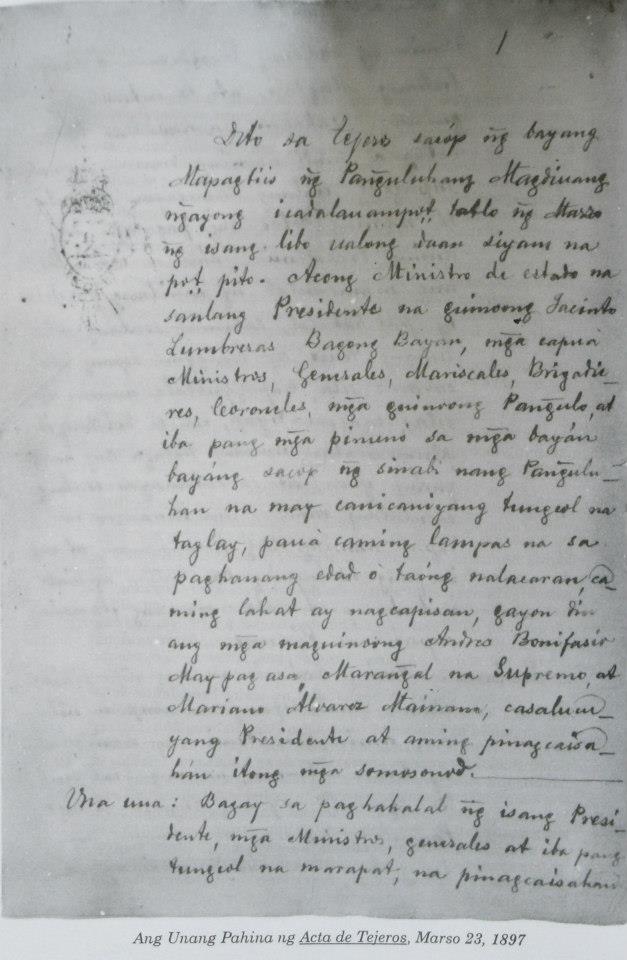 1
Dito sa Tejero sacóp ng̃ bayang
Mapagtiis ng̃ Pang̃uluhang Magdiuang
ng̃ayong icadalauampọt, tatlo ng̃ Marzo
ng̃ isang libo ualong daan siyam na
pọt, pito. Acong Ministro de estado na
sanlang Presidente na guinoong Jacinto
Lumbreras Bagong Bayan, mg̃a capuà
Ministros, Generales, Mariscales, Brigadie-
res, Coroneles, mg̃a guinoong Pang̃ulo, at
iba pang mg̃a pimunò sa mg̃a bayán
bayáng sacop ng̃ sinabi nang Pang̃ulu-
han na may canicaniyang tungcol na
taglay, pauà caming lampas na sa
paghanang edad ò taóng nalacaran, ca-
ming lahat ay nagcapisan, gayon din
ang mg̃a maguinoong Andres Bonifasio
May pag asa, Marang̃al na Supremo, at
Mariano Álvarez Mainam, casalucu-
yang Presidente at aming pinagcaisa-
hán itong mg̃a somosonod.
Una una: Bagay sa paghahalal ng̃ isang Presi-
dente, mg̃a Ministros, generales at iba pang
tungcol na marapat, na pinagcaisahan
Ang Unang Pahina ng Acta de Tejeros, Marso 23, 1897